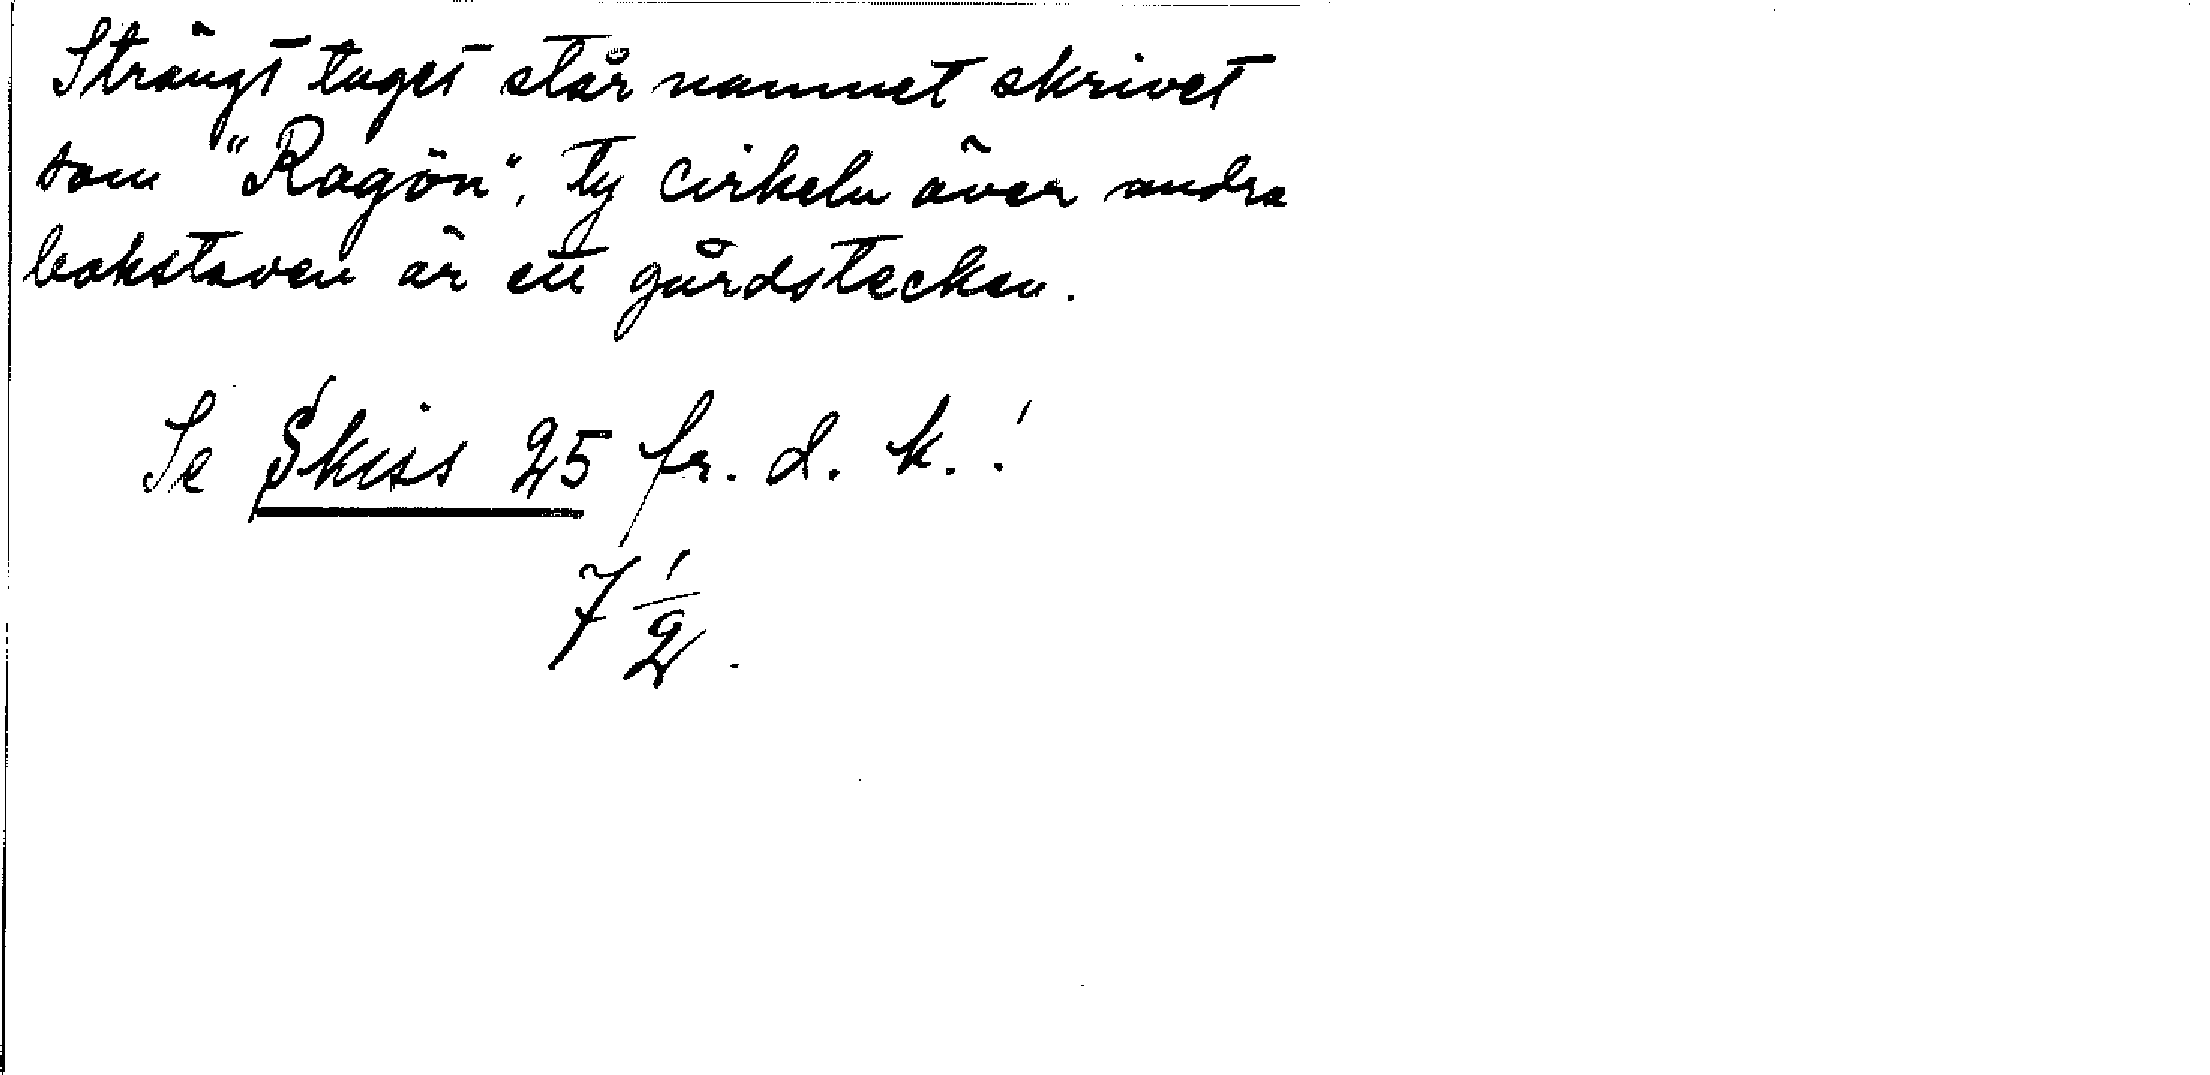 Strängt taget står namnet skrivet
som "Ragön", ty cirkeln över andra
bokstaven är ett gårdstecken.
Se Skiss 25 fr. d. k.!
7 1/2.